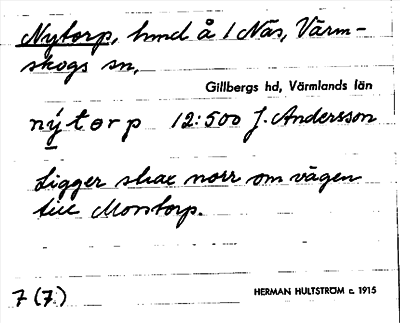 Nytorp, hmd å 1 Näs, Värm-
skogs sn,
Gillbergs hd, Värmlands län
nýtorp 12:500 J. Andersson
Ligger strax norr om vägen
till Montorp.
7 (7.)
HERMAN HULTSTRÖM c. 1915